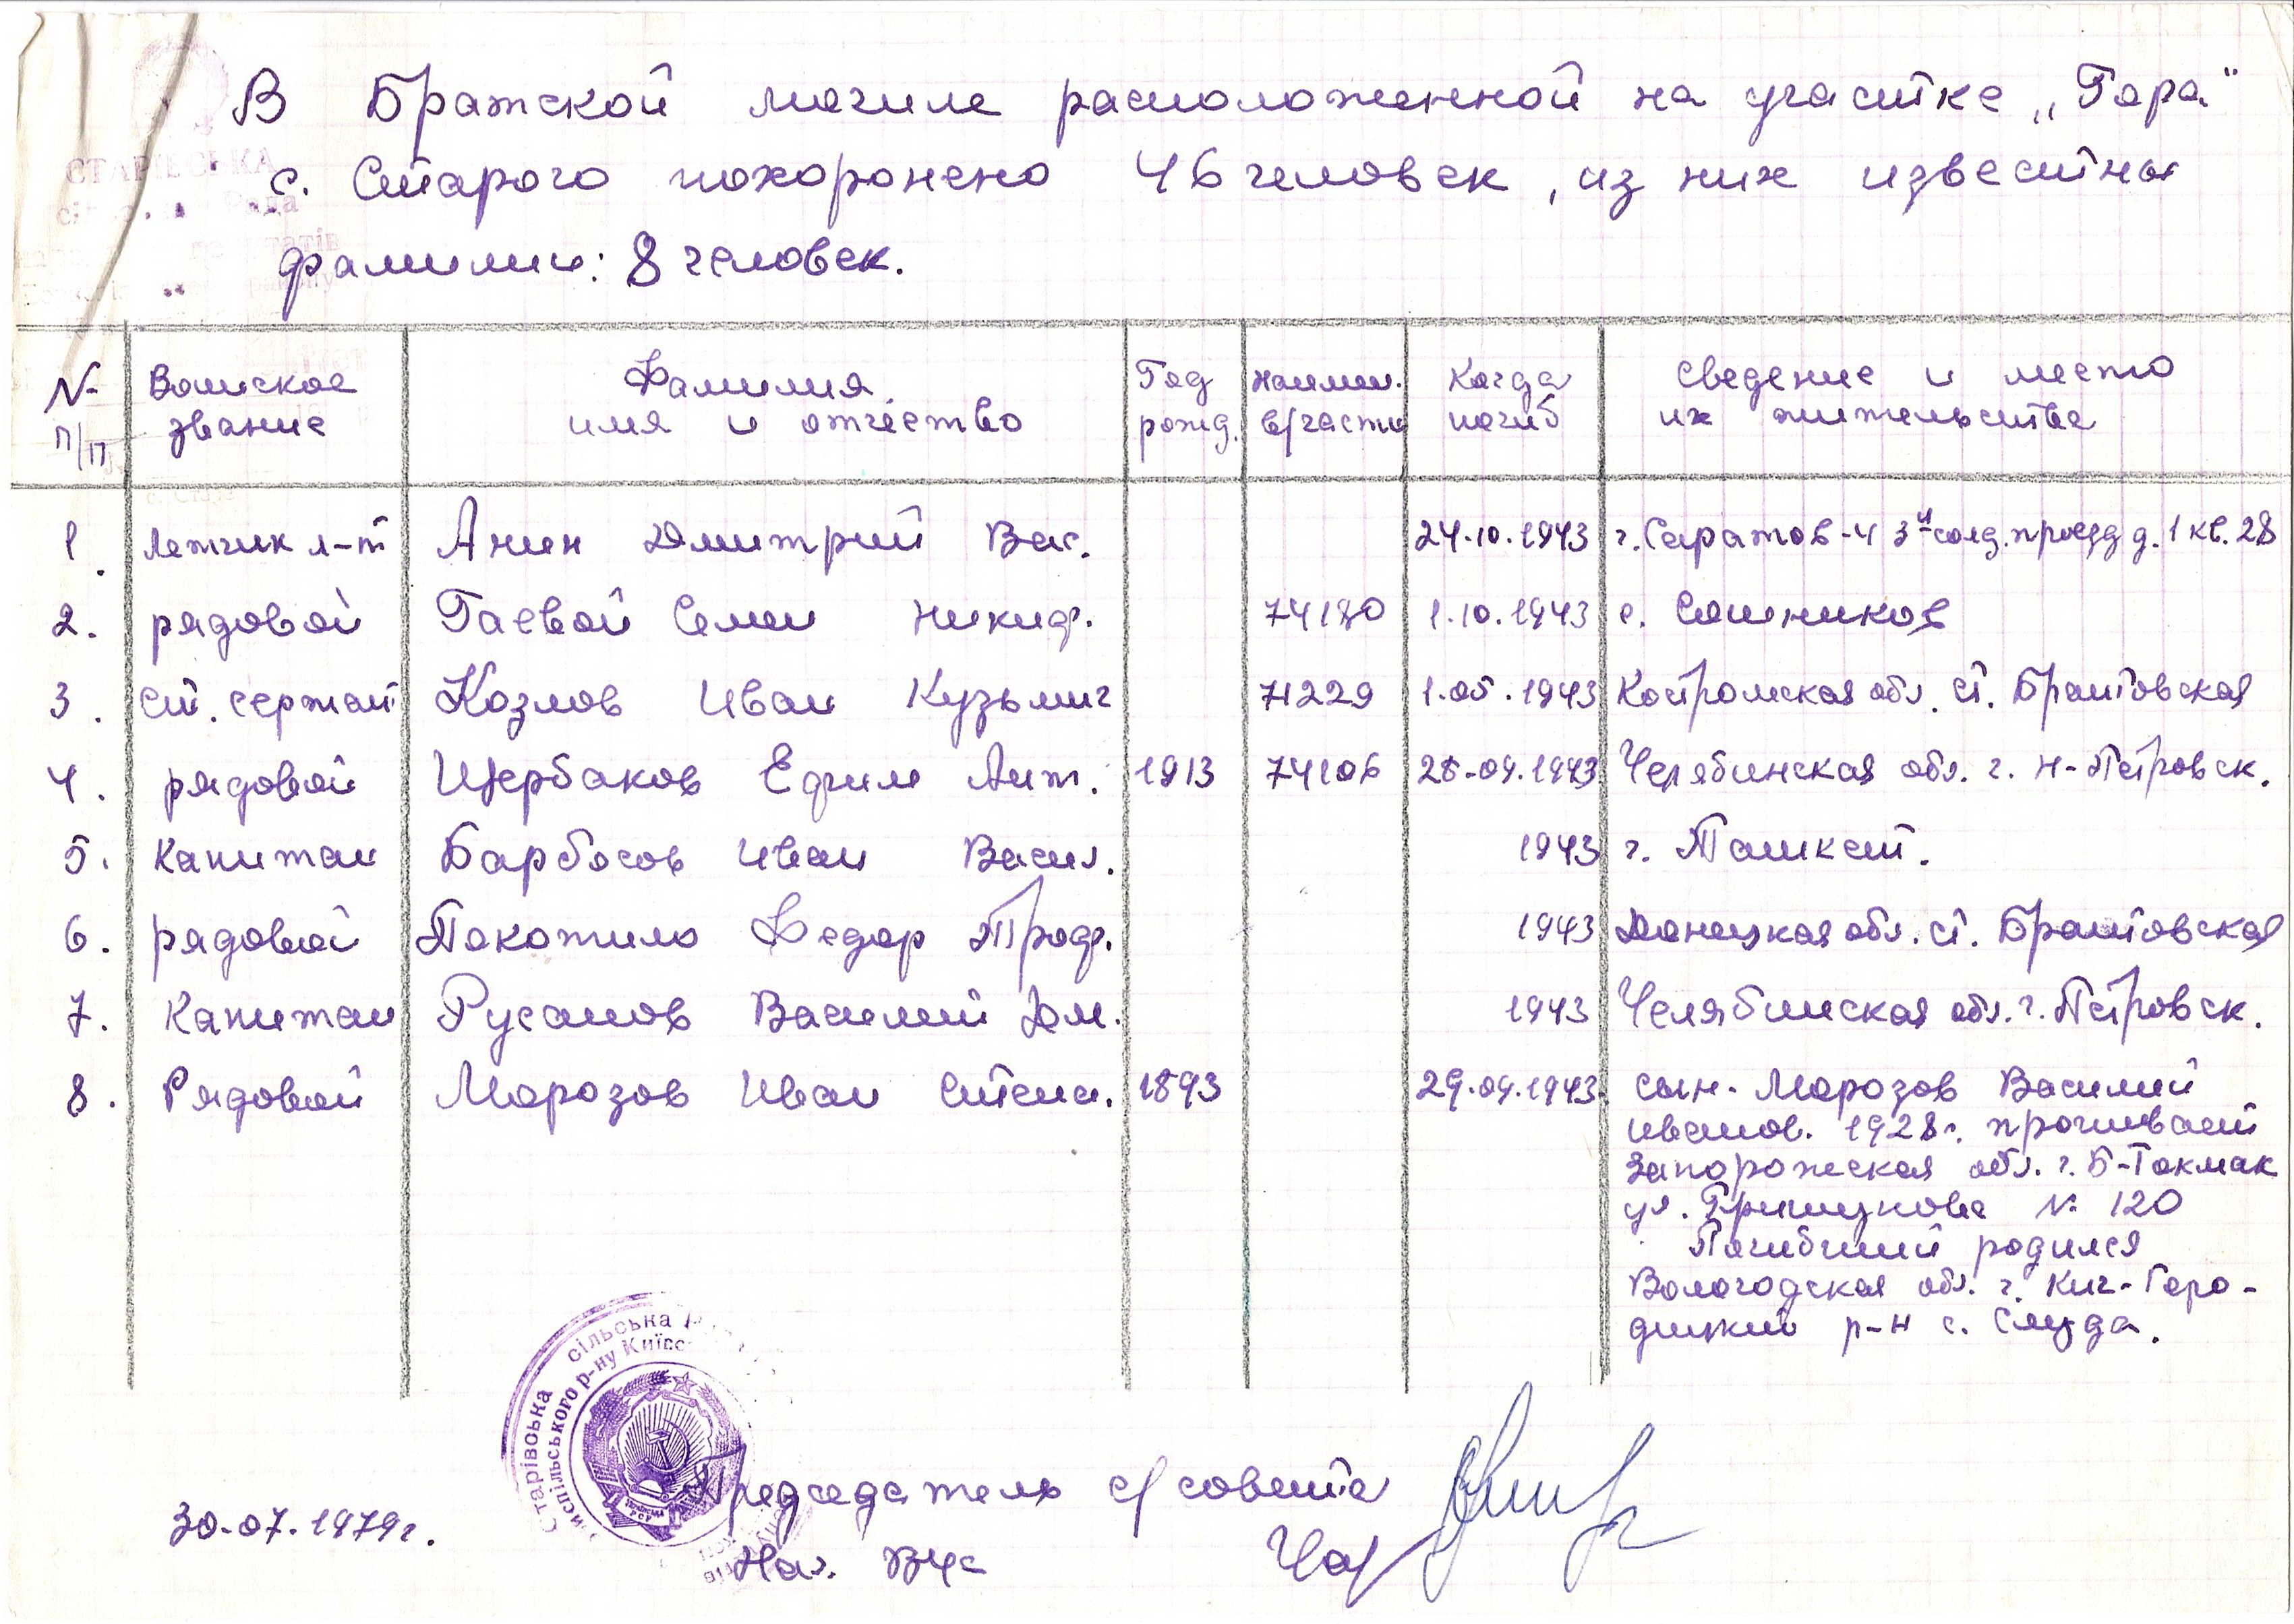 В Братской могиле расположенной на участке „Гора"
с. Старого похоронено 46 человек, из них известны
фамилии: 8 человек.
№ п/п Воинское звание Фамилия имя и отчество Год рожд. наимен. в/части Когда погиб сведение и место их жительства
1. Летчик л-т Анин Дмитрий Вас. 24.10.1943 г. Саратов-4 3й солд. проезд д. 1 кв. 28
2. рядовой Гаевой Семен Никиф. 74180 1.10.1943 с.
3. ст. сержант Козлов Иван Кузьмич 71229 1.05.1943 Костромская обл. ст. Брантовская
4. рядовой Щербаков Ефим Ант. 1913 74106 28-09.1943 Челябинская обл. г. Н-Петровск.
5. Капитан Барбосов Иван Васил. 1943 г. Ташкент.
6. рядовой Покотило Федор Троф. 1943 Донецкая обл. ст. Брантовская
7. Капитан Русанов Василий Дм. 1943 Челябинская обл. г. Петровск.
8. Рядовой Морозов Иван Степан. 1893 29.09.1943. сын - Морозов Василий
иванов. 1928г. проживает
Запорожская обл. г. Б-Токмак
ул. № 120
Погибший родился
Вологодская обл. г. Кич-Горо-
дицкий р-н с. Слуда.
Старівська сільська
р-ну Київс
30.07.1979г.
Председатель с/совета
Нач. ВУС